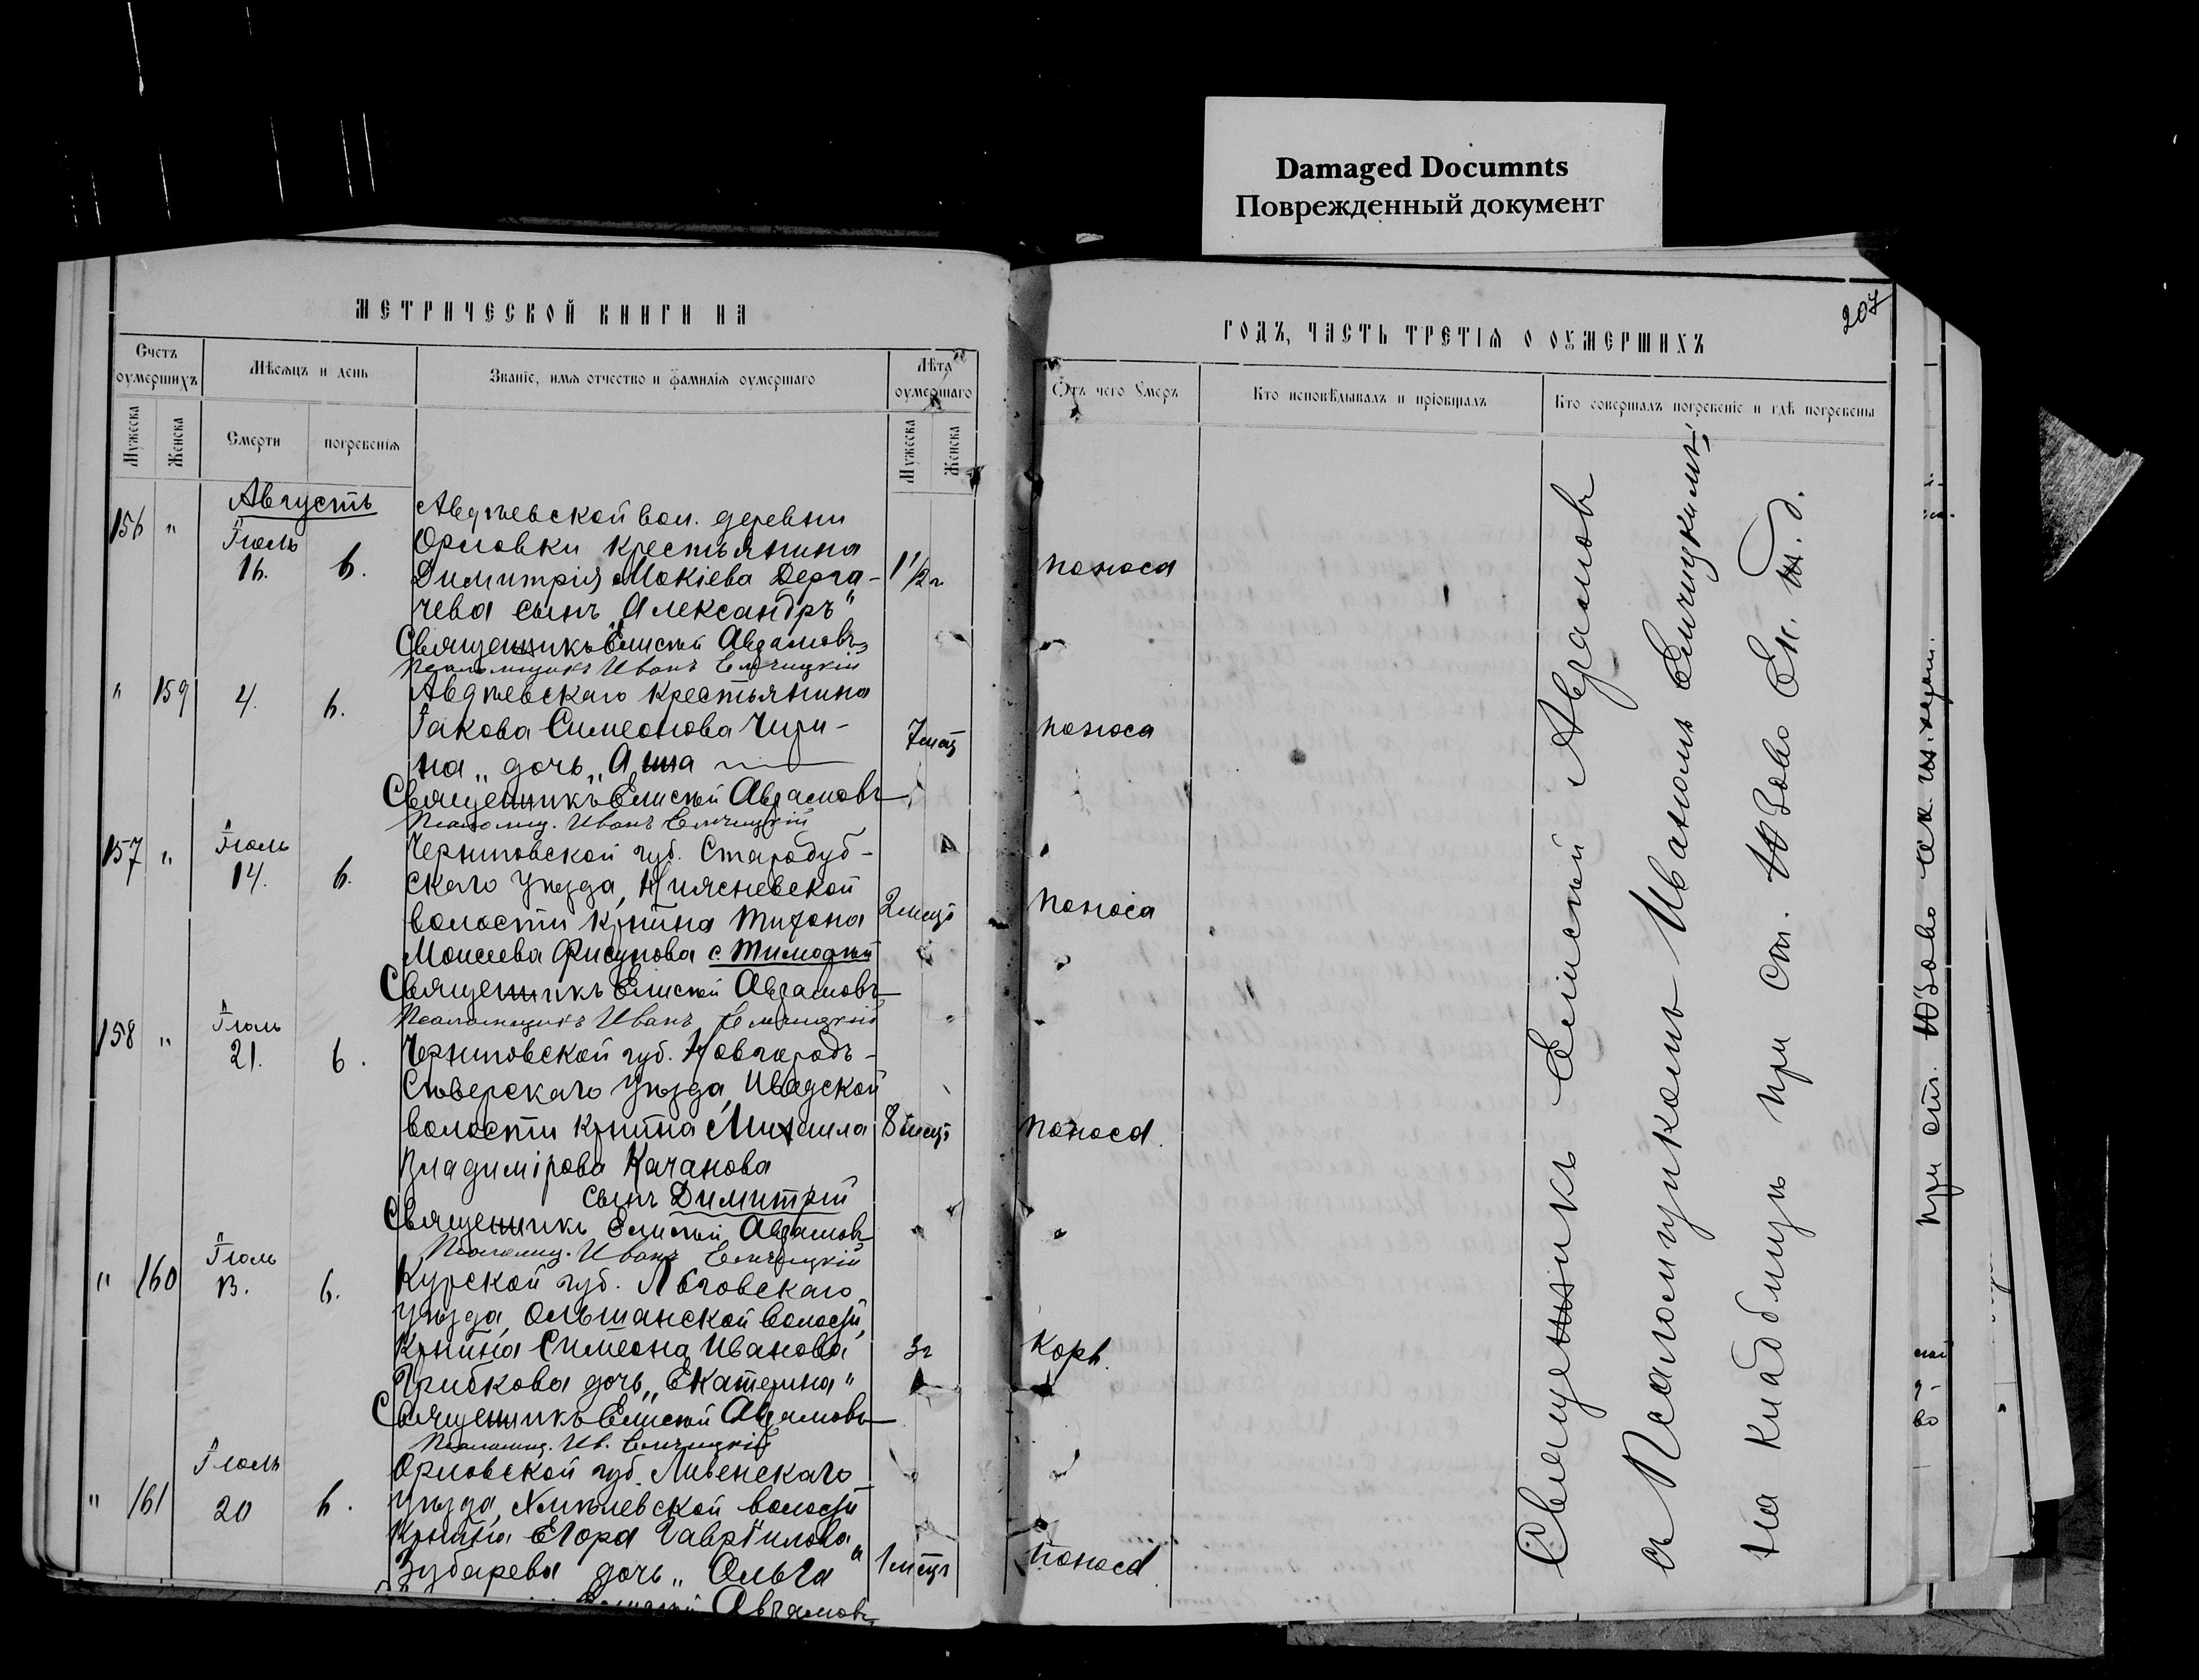 Damaged Documnts
Поврежденный документ
МЕТРИЧЕСКОЙ КНИГИ НА
ГОДЪ, ЧАСТЬ ТРЕТІЯ О ОУМЕРШИХЪ
207
Счетъ оумершихъ
Мѣсяцъ и день
Званіе, имя отчество и фамилія оумершаго
Лѣта оумершаго
Отъ чего Умеръ
Кто исповѣдывалъ и пріобщалъ
Кто совершалъ погребеніе и гдѣ погребены
Мужеска
Женска
Смерти
погребенія
Мужеска
Женска
Августъ
156 " Іюль 16. 6.
Авдѣевской вол. деревни
Орловки крестьянина
Димитрія Мокіева Дерга-
чева сынъ „Александръ"
1 1/2 г
поноса
Священникъ Елисей Авраамовъ
Псаломщикъ Иванъ Елчицкій
" 159 4. 6.
Авдѣевскаго крестьянина
Іакова Симеонова Чири-
на „дочь „Анна
7 мѣц
поноса
Священникъ Елисей Авраамовъ
Псаломщ. Иванъ Елчицкій
157 " Іюль 14. 6.
Черниговской губ. Стародуб-
скаго уѣзда,
волости кр-нина Тихона
Моисеева Фисунова с. Тимофей
2 мѣц
поноса
Священникъ Елисей Авраамовъ
Псаломщикъ Иванъ Елчицкій
158 " Іюль 21. 6.
Черниговской губ. Новгородъ-
Сѣверскаго уѣзда,
волости кр-нина Михаила
Владимірова Качанова
сынъ Димитрій
8 мѣц
поноса.
Священникъ Елисей Авраамовъ
Псаломщ. Иванъ Елчицкій
" 160 Іюль 13. 6.
Курской губ. Льговскаго
уѣзда, Ольшанской волости,
кр-нина Симеона Иванова
Грибкова дочь „Екатерина"
3 г
Корь.
Священникъ Елисей Авраамовъ
Псаломщ. Ив. Елчицкій
" 161 Іюль 20 6.
Орловской губ. Ливенскаго
уѣзда, волости
кр-нина Егора Гавріилова
Зубарева дочь „Ольга"
1 мѣц
поноса.
Елисей Авраамовъ
Священникъ Елисей Авраамовъ
съ Псаломщикомъ Иваномъ Елчицкимъ
на кладбищѣ при ст. Юзово Ек. ж. д.
при ст. Юзово